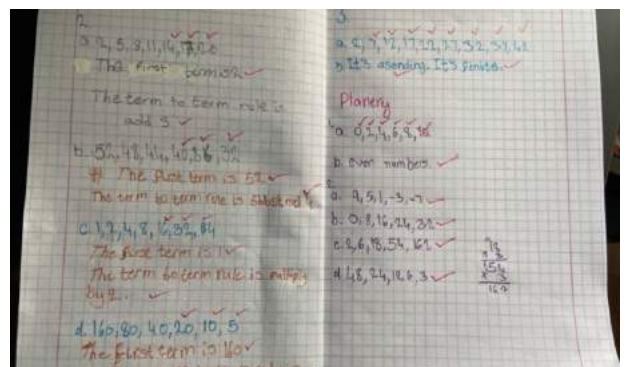 2.
a 2, 5, 8, 11, 14, 17, 20
The first term is 2
The term to term rule is
add 3
b. 52, 48, 44, 40, 36, 32
The first term is 52
The term to term rule is
c. 1, 2, 4, 8, 16, 32, 64
The first term is 1
The term to term rule is multiply
by 2.
d. 160, 80, 40, 20, 10, 5
The first term is 160
3.
a. 2, 7, 12, 17, 22, 27, 32, 37, 42
b. It's asending. It's finite.
Planery
a 0, 2, 4, 6, 8, 10
b. even numbers.
2
a. 9, 5, 1, -3, -7
b. 0, 8, 16, 24, 32
c. 2, 6, 18, 54, 162
d. 48, 24, 12, 6, 3
54
3
162